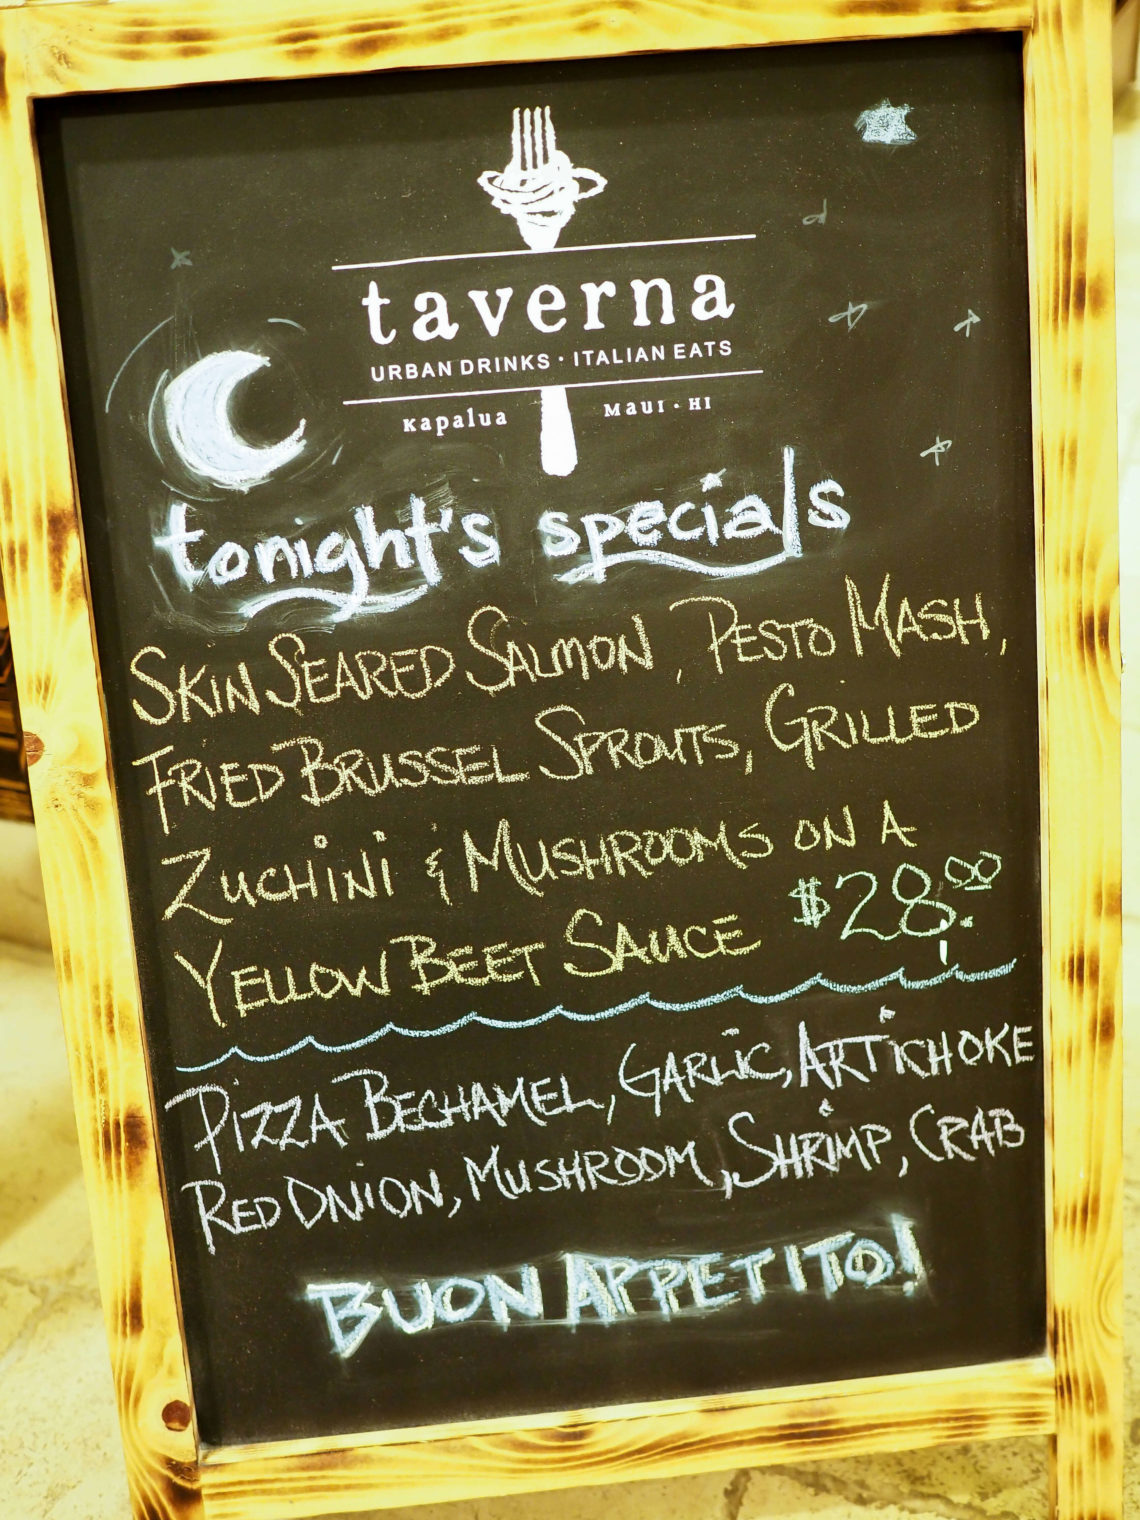 taverna
URBAN DRINKS · ITALIAN EATS
Kapalua MAUI · HI
tonight's specials
SKIN SEARED SALMON, PESTO MASH,
FRIED BRUSSEL SPROUTS, GRILLED
ZUCHINI & MUSHROOMS ON A
YELLOW BEET SAUCE $28.00
PIZZA BECHAMEL, GARLIC, ARTICHOKE
RED ONION, MUSHROOM, SHRIMP, CRAB
BUON APPETITO!